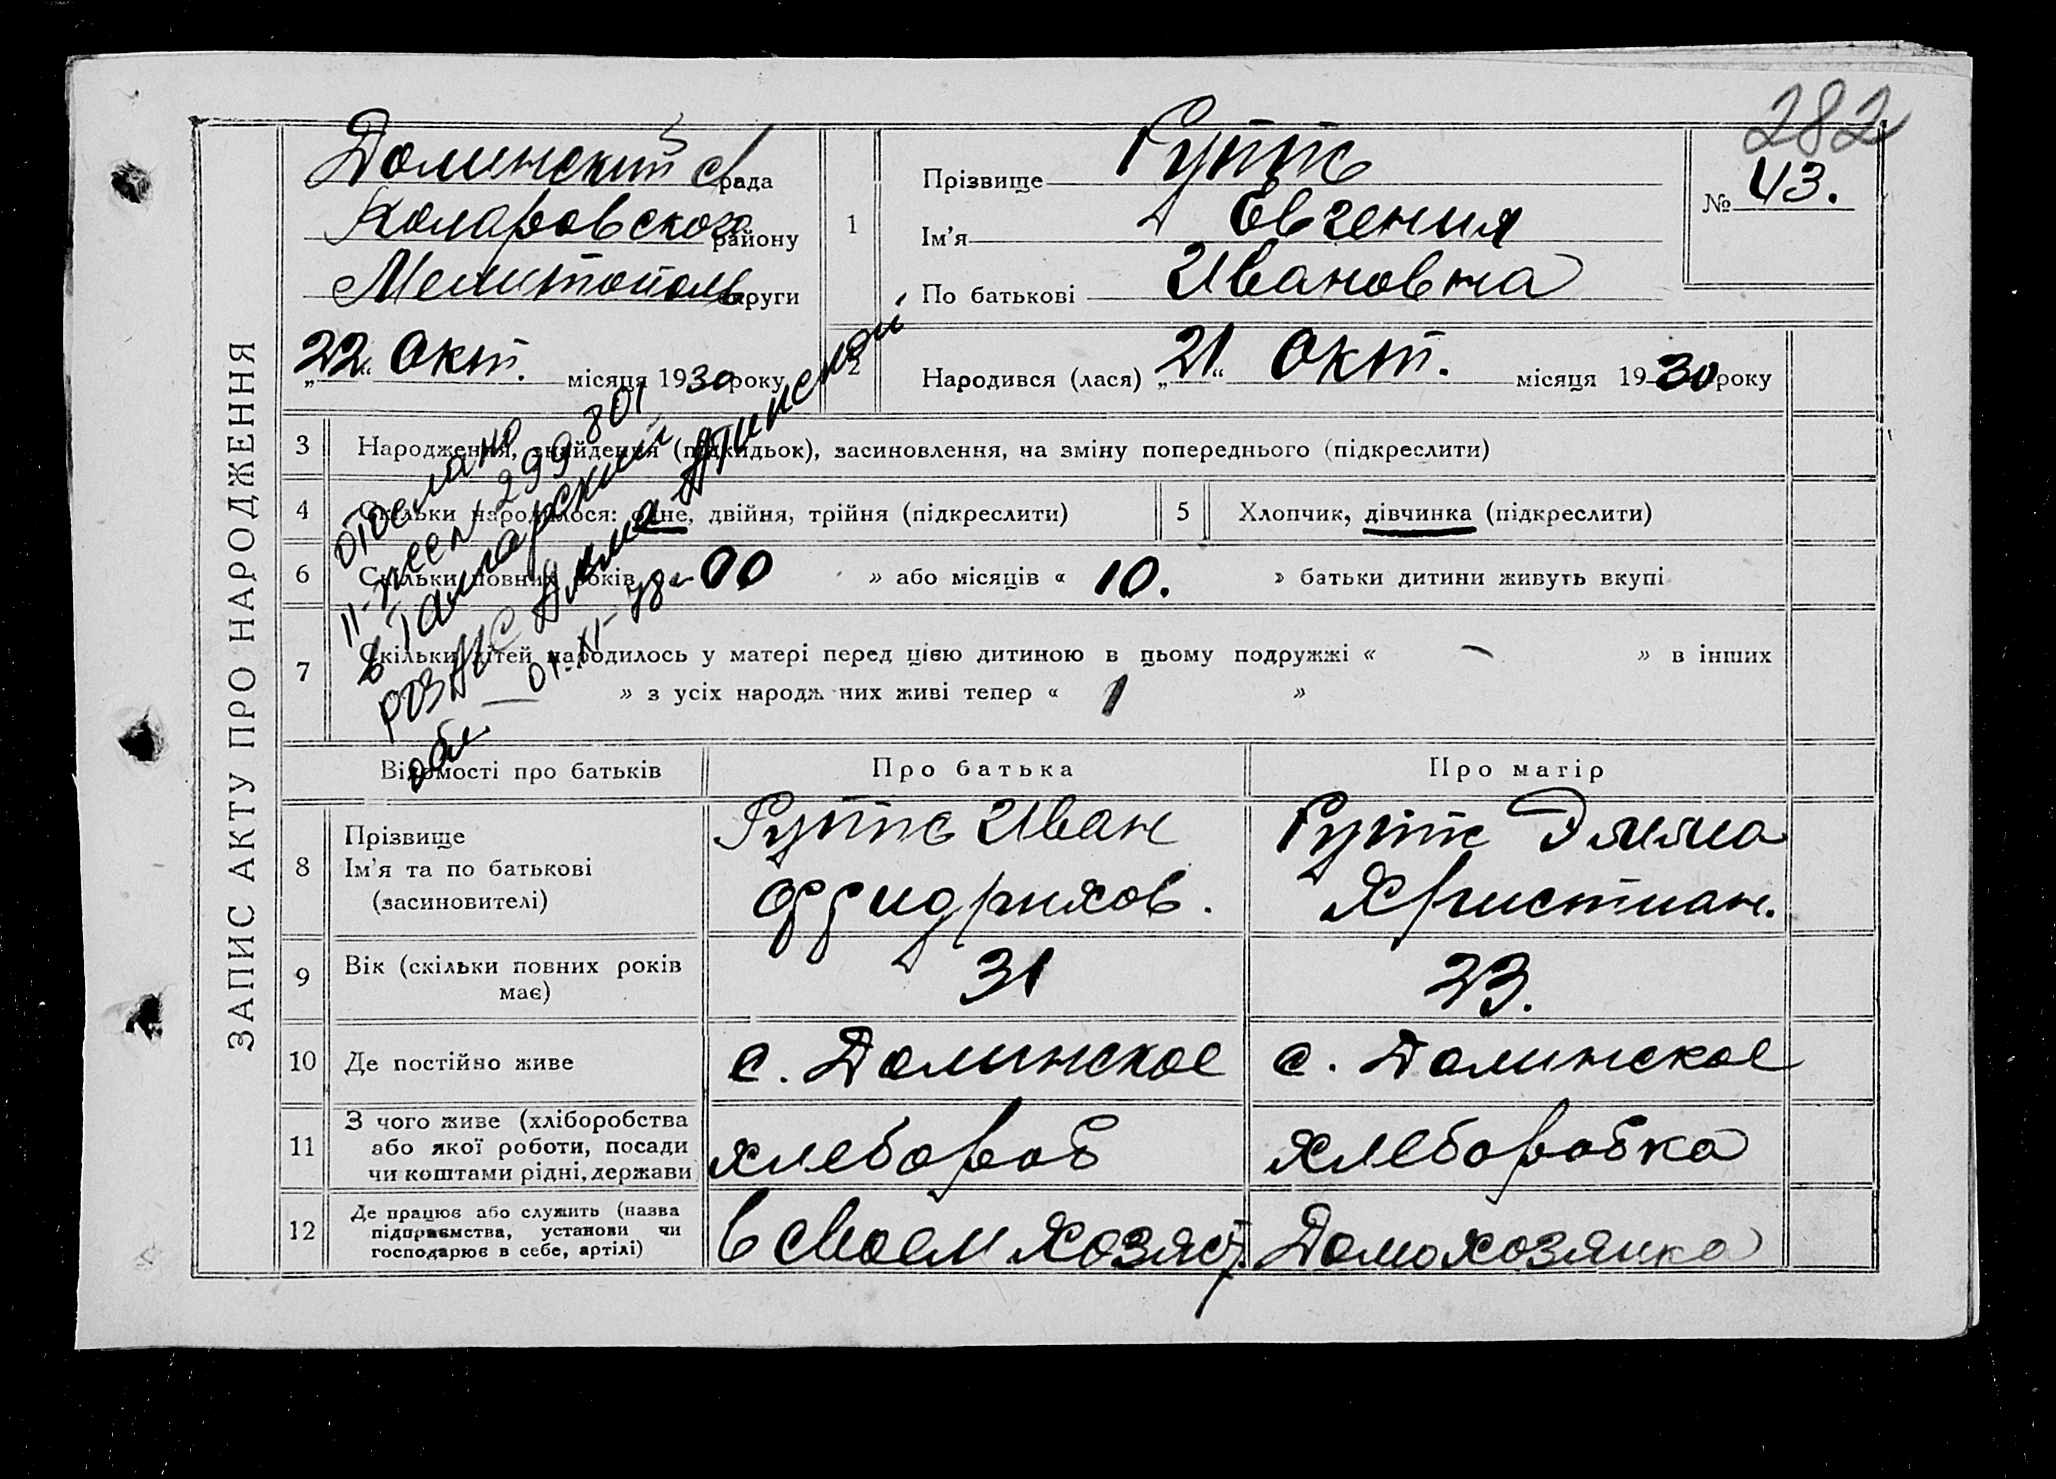 282
ЗАПИС АКТУ ПРО НАРОДЖЕННЯ
Долинский с/рада
Коларовского району
Мелитополь округи
„22“ Окт. місяця 1930 року
1
Прізвище Рупп
Ім'я Евгения
По батькові Ивановна
№ 43.
2
Народився (лася) „21“ Окт. місяця 1930 року
3 Народження, знайдення (підкидьок), засиновлення, на зміну попереднього (підкреслити)
4 Скільки народилося: одне, двійня, трійня (підкреслити)
5 Хлопчик, дівчинка (підкреслити)
6 Скільки повних років „ 00 » або місяців « 10. » батьки дитини живуть вкупі
7 Скільки дітей народилось у матері перед цією дитиною в цьому подружжі « – » в інших
» з усіх народж них живі тепер « 1 »
II-жел 299801
в Талгарский
01-XI-78г
обл.
Відомості про батьків
Про батька
Про матір
8 Прізвище
Ім'я та по батькові
(засиновителі)
Иван
Христиан.
9 Вік (скільки повних років
має)
31
23.
10 Де постійно живе
с. Долинское
с. Долинское
11 З чого живе (хліборобства
або якої роботи, посади
чи коштами рідні, держави
хлебороб
хлеборобка
12 Де працює або служить (назва
підприємства, установи чи
господарює в себе, артілі)
в своем хозяст.
Домохозяйка